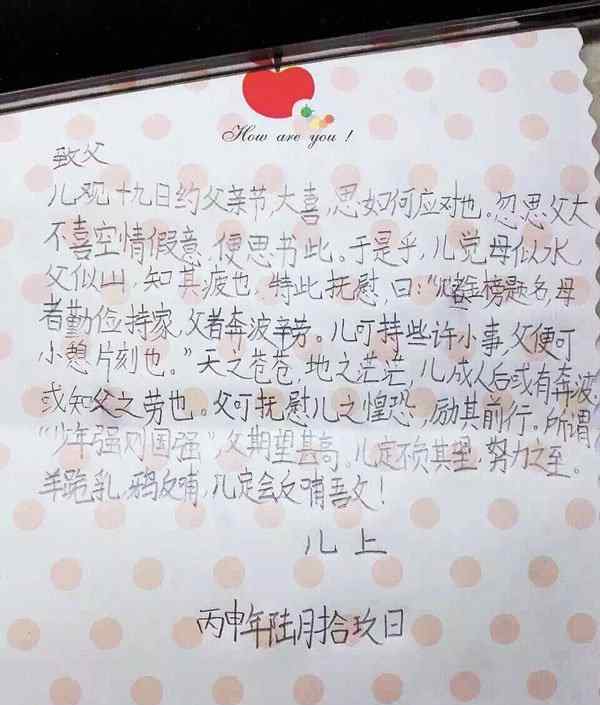 How are you !
致父
儿观十九日约父亲节,大喜,思如何应对也。忽思父大
不喜空情假意,便思书此。于是乎,儿觉母似水,
父似山,知其疲也,特此抚慰,曰:“金榜题名,母
者勤俭持家,父者奔波辛劳。儿可持些许小事,父便可
小憩片刻也。”天之苍苍,地之茫茫,儿成人后或有奔波,
或知父之劳也。父可抚慰儿之惶恐,励其前行。所谓
“少年强则国强”,父期望甚高。儿定不负其望,努力之至。
羊跪乳,鸦反哺,儿定会反哺吾父!
儿上
丙申年陆月拾玖日